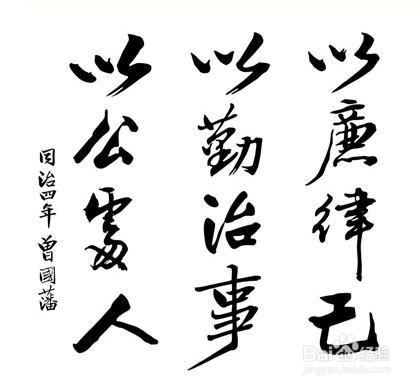 以廉律己
以勤治事
以公處人
同治四年曾國藩
Baidu经验
jingyan.baidu.com